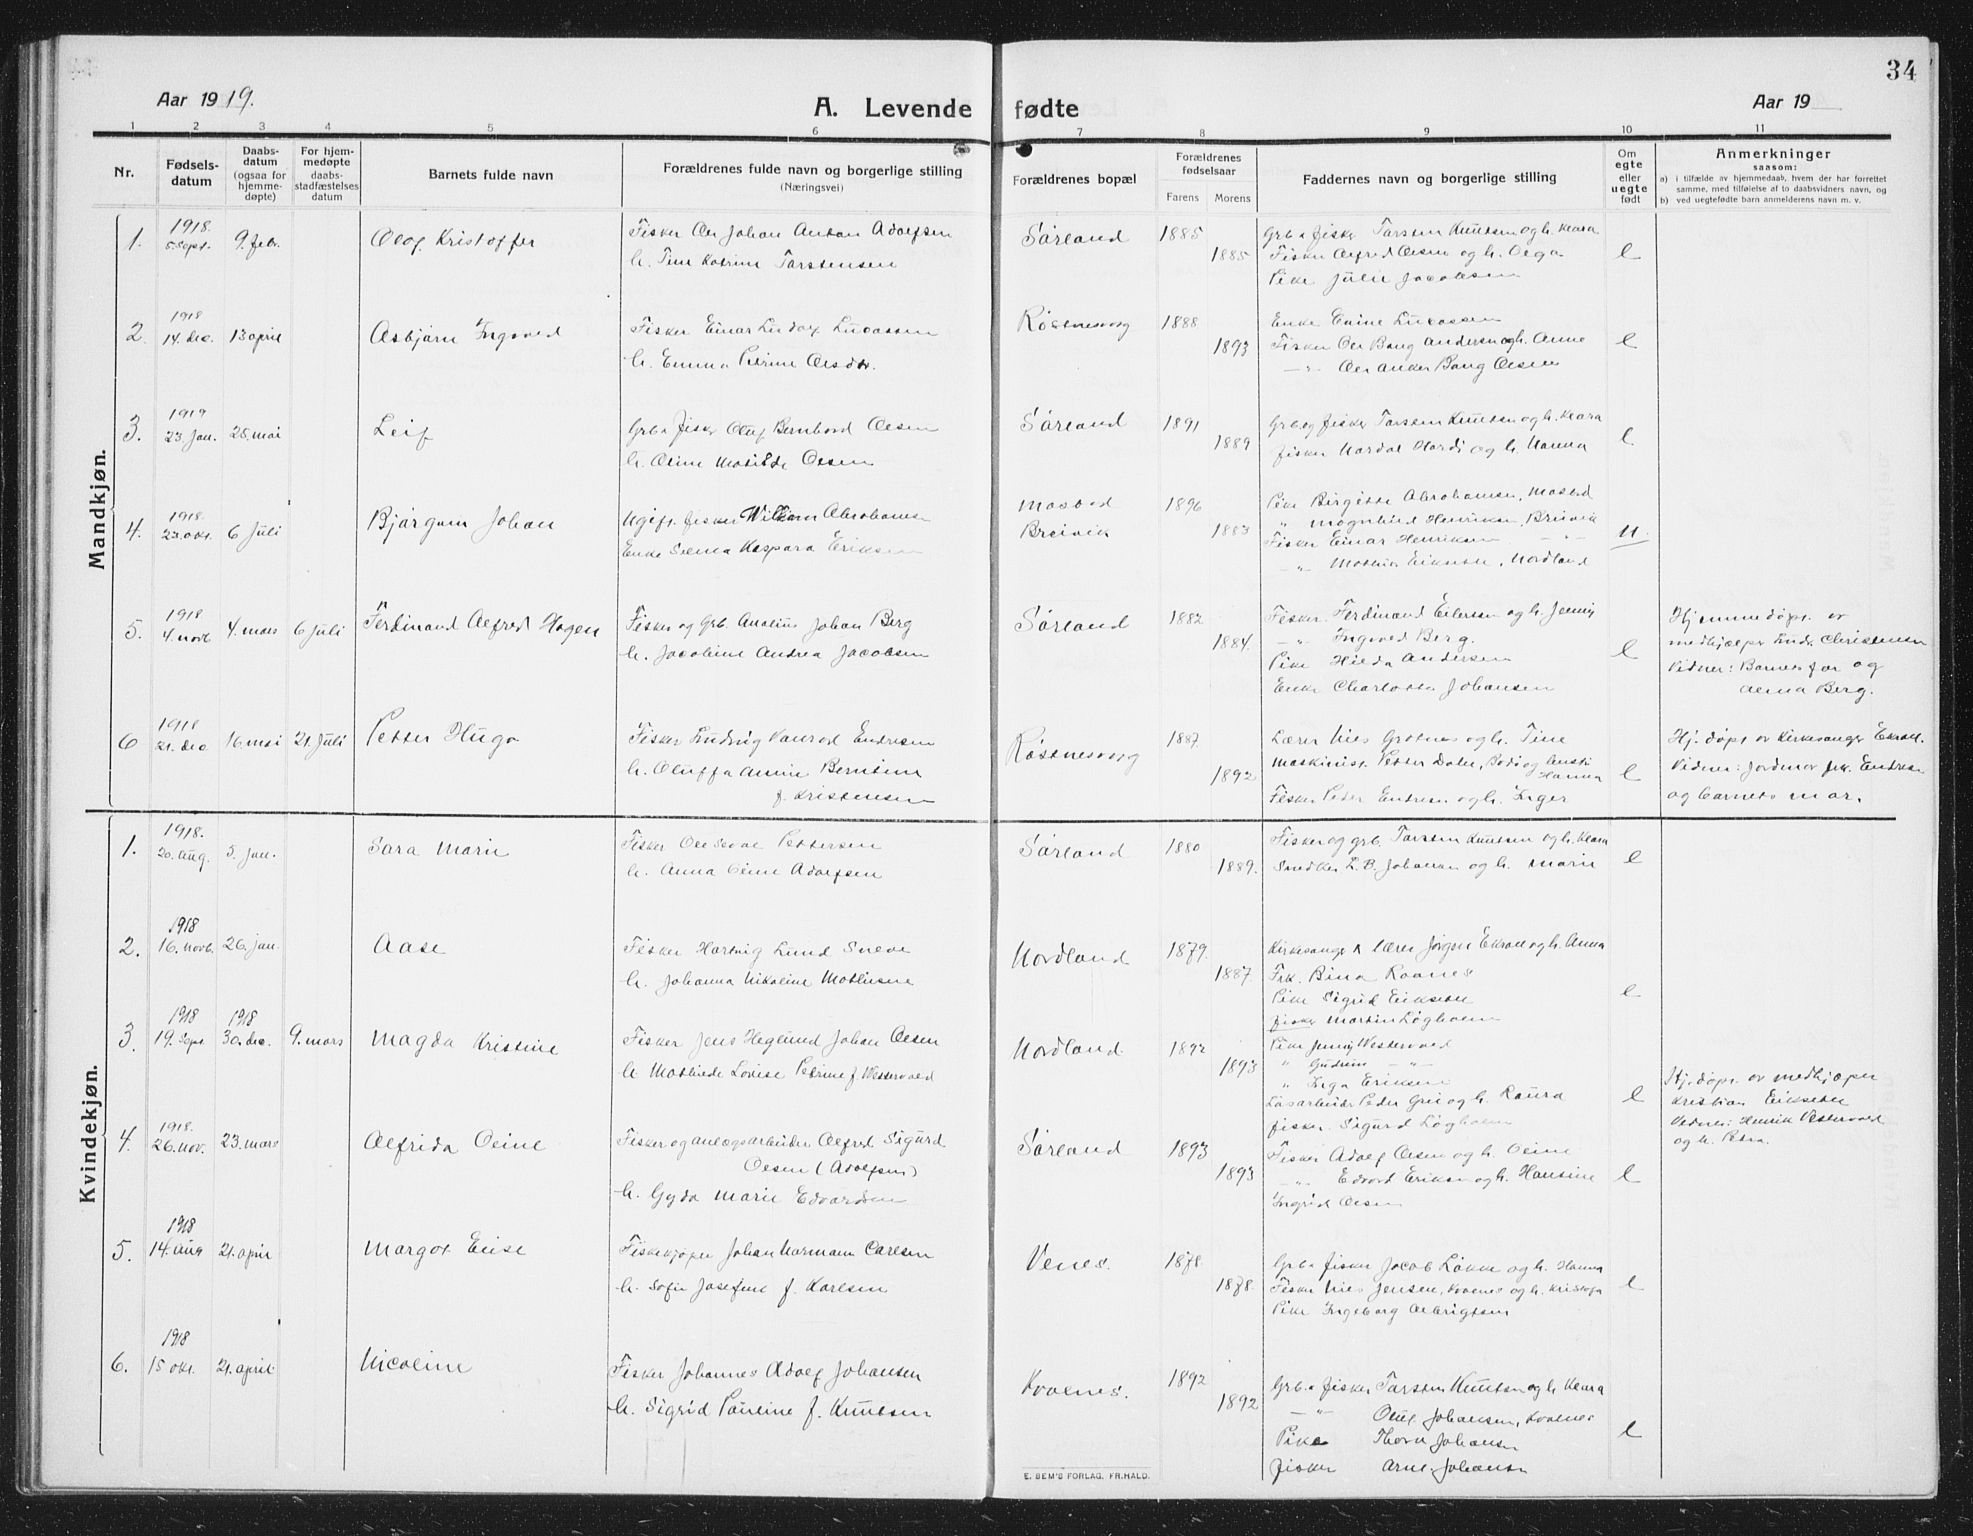 34
Aar 1919.
A. Levende fødte
Aar 19
1 2 3 4 5 6 7 8 9 10 11
Nr.
Fødsels-
datum
Daabs-
datum
(ogsaa for
hjemme-
døpte)
For hjem-
medøpte
daabs-
stadfæstelses
datum
Barnets fulde navn
Forældrenes fulde navn og borgerlige stilling
(Næringsvei)
Forældrenes bopæl
Forældrenes
fødselsaar
Farens Morens
Faddernes navn og borgerlige stilling
Om
egte
eller
uegte
født
Anmerkninger
saasom:
a) i tilfælde av hjemmedaab, hvem der har forrettet
samme, med tilføielse af to daabsvidners navn, og
b) ved uegtefødte barn anmelderens navn m. v.
Mandkjøn.
1. 1918. 5 sept. 9. febr. Olaf Kristoffer
Fisker Ole Johan Anton Adolfsen
h. Tine Katrine Torstensen
Sørland 1885 1885
Grb. & fisker Torsten Knutsen og h. Klara
Fisker Alfred Olsen og h. Olga
Pike Julie Jacobsen
e
2. 1918 14. dec. 13 april Asbjørn Ingvald
Fisker Einar Lucassen
h. Emma Petrine Olsdtr.
Røstnesvåg 1888 1893
Enke Lucassen
Fisker Ole Bang Andersen og h. Anne
—"— Ole Anker Bang Olsen
e
3. 1919 23. jan. 25. mai Leif
Grb. & fisker Oluf Bernhard Olsen
h. Oline Matilde Olsen
Sørland 1891 1889
Grb. og fisker Torsten Knutsen og h. Klara
fisker Hardi og h. Hanna
e
4. 1918. 23. okt. 6 juli Bjørgum Johan
Ugift fisker William Abrahamsen
Enke Selma Kaspara Eriksen
Mostad
Breivik
1896 1883
Pike Birgitte Abrahamsen, Mostad
" Magnhild Henriksen, Breivik
Fisker Einar Henriksen —"—
—"— Mathis Eriksen, Nordland
u.
5. 1918. 4. novb 4. mars 6 juli Ferdinand Alfred Hagen
Fisker og Grb. Analius Johan Berg
h. Jacobine Andrea Jacobsen
Sørland 1882 1884.
Fisker Ferdinand Eilertsen og h. Jenny
—"— Ingvald Berg.
Pike Hilda Andersen
Enke Charlotte Johansen
e
Hjemmedøpt av
medhjælper Christensen
Vidner: Barnets far og
Alma Berg.
6 1918 21. dec 16. mai 21. juli Petter Hugo
Fisker Ludvig Konrad Endresen
h. Oluffa Amine Berntine
f. Kristensen
Røstnesvåg 1887. 1892
Lærer Nils Grotnes og h. Tine
Maskinist Petter Dalen, Bodø og
Hanna
Fisker Peder Endresen og h. Inger
e
Hj. døpt av kirkesanger Ekroll.
Vidner: Jordmor frk. Endresen
og barnets mor.
Kvindekjøn.
1. 1918. 20. aug. 5. jan. Sara Marie
Fisker Ole Pettersen
h. Anna Oline Adolfsen
Sørland 1880 1889.
Fisker og grb. Torsten Knutsen og h. Klara
Snedker L. B. Johansen og h. Marie
e
2. 1918 16. novb. 26. jan. Aase
Fisker Hartvig Lund
h. Johanna Nikoline Mathisen
Nordland 1879. 1887.
Kirkesanger & lærer Jørgen Ekroll og h. Anna
Frk. Bina Raanes
Pike Sigrid
fisker Martin Løgholm
e
3. 1918 19. sept. 1918 30. dec. 9. mars Magda Kristine
Fisker Jens Heglund Johan Olsen
h. Mathilde Lovise Petrine f. Westervold
Nordland 1892 1893
Pike Jenny Westervold
" Gudrun —"—
" Inga Eriksen
Løsarbeider Peder og h. Laura
fisker Sigurd Løgholm
e
Hj. døpt av medhjælper
Kristian
Vidner: Henrik Vestervold
og h. Petra.
4. 1918. 26. nov. 23. mars Alfrida Oline
Fisker og anlegsarbeider Alfred Sigurd
Olsen (Adolfsen)
h. Gyda Marie Edvardsen
Sørland 1893 1893
Fisker Adolf Olsen og h. Oline
—"— Edvard Eriksen og h. Hansine
Ingrid Olsen
e
5. 1918 14. aug 21. april Margot Elise
Fiskekjøper Johan Normann Carlsen
h. Sofie Josefine f. Karlsen
Venes. 1878. 1878.
Grb. & fisker Jacob Løkke og h. Hanna
Fisker Nils Jensen, Kvalnes og h.
Pike Ingeborg Albrigtsen
e
6. 1918 15 okt. 21. april Nicoline
Fisker Johannes Adolf Johansen
h. Sigrid Pauline f. Knutsen
Kvalnes. 1892 1892
Grb. & fisker Torsten Knutsen og h. Klara
—"— Oluf Johansen, Kvalnes
Pike Thora Johansen
fisker Arne Johansen
e
E. SEM'S FORLAG, FR.HALD.